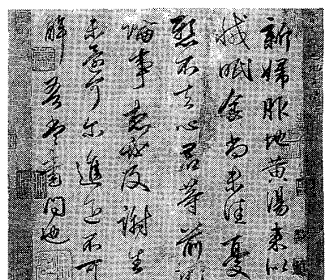 新婦服地黄湯來似
減眠食尚未佳憂
懸不去心君等前所
論事想必及謝生
未還可尔進退不可
解吾當書問也